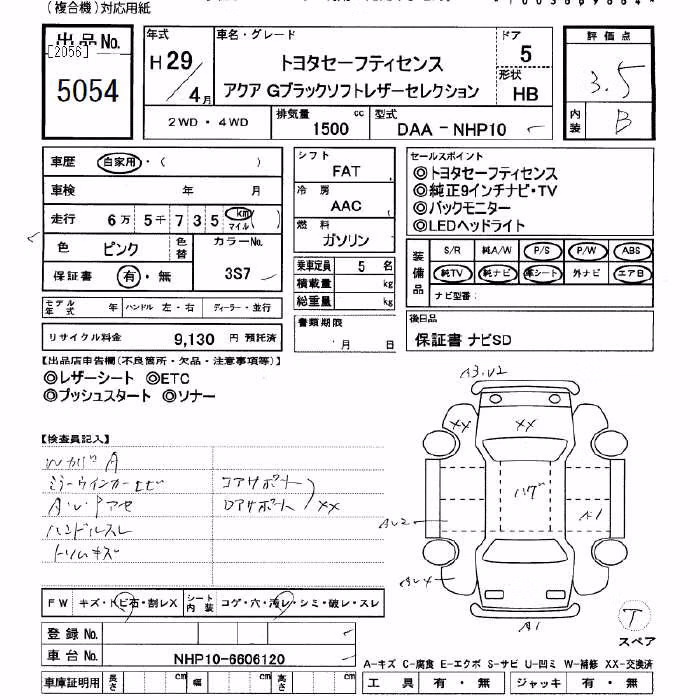 (複合機)対応用紙
出品No. [2056] 5054
年式 H29/4月
車名・グレード トヨタセーフティセンス
アクア Gブラックソフトレザーセレクション
ドア 5
形状 HB
評価点 3.5
内装 B
2WD・4WD
排気量 1500 cc
型式 DAA-NHP10
車歴 自家用・( )
車検 年 月
走行 6万5千735 km マイル
色 ピンク 色替 カラーNo. 3S7
保証書 有・無
モデル年式 年 ハンドル 左・右 ディーラー・並行
リサイクル料金 9,130 円 預託済
シフト FAT
冷房 AAC
燃料 ガソリン
乗車定員 5 名
積載量 kg
総重量 kg
書類期限 月 日
セールスポイント
◎トヨタセーフティセンス
◎純正9インチナビ・TV
◎バックモニター
◎LEDヘッドライト
装備品 S/R 純A/W P/S P/W ABS
純TV 純ナビ 革シート 外ナビ エアB
ナビ型番:
後日品
保証書 ナビSD
【出品店申告欄(不良箇所・欠品・注意事項等)】
◎レザーシート ◎ETC
◎プッシュスタート ◎ソナー
【検査員記入】
ミラーウインカーヒビ
コアサポート
ロアサポート XX
ハンドルスレ
トリムキズ
A3.U2
XX XX
ハゲ
AU2
A1
AU4
A1
T
スペア
FW キズ・トビ石・割レX シート内装 コゲ・穴・汚レ・シミ・破レ・スレ
登録No.
車台No. NHP10-6606120
車庫証明用 長さ cm 幅 cm 高さ cm
A-キズ C-腐食 E-エクボ S-サビ U-凹ミ W-補修 XX-交換済
工具 有・無 ジャッキ 有・無